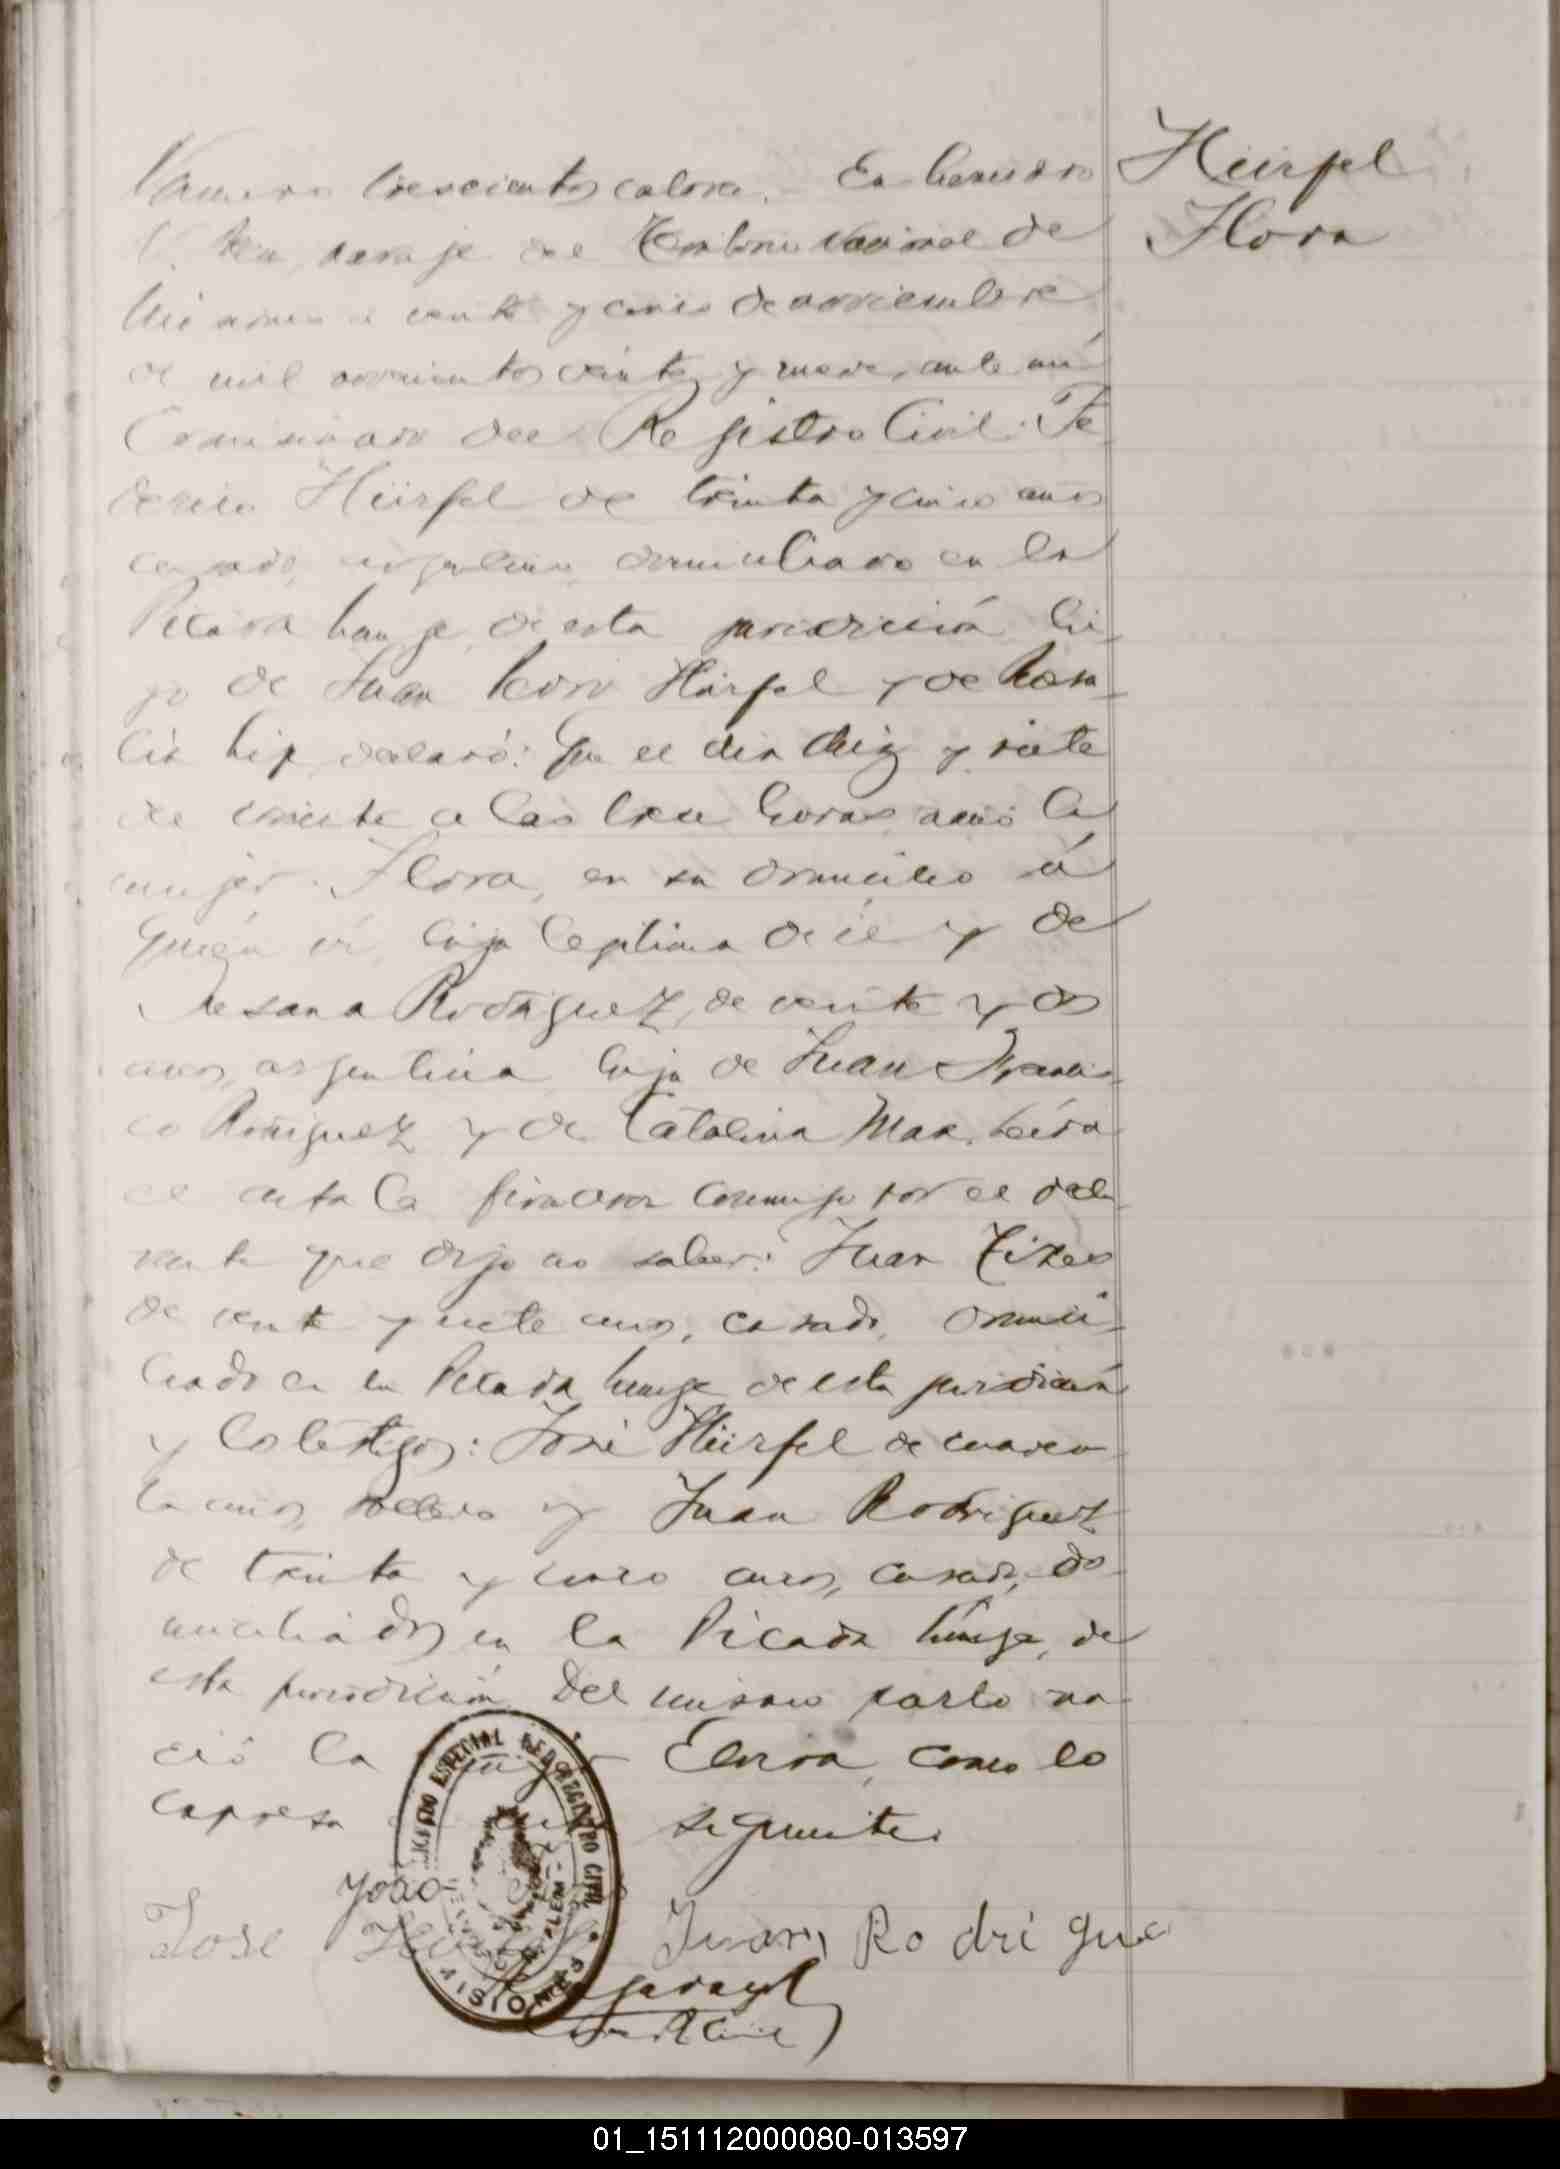 Hürfel
Flora
Numero trescientos catorce. En Leandro
N. Alem, paraje del Territorio Nacional de
Misiones a veinte y cinco de noviembre
de mil novecientos veinte y nueve, ante mi
Comisionado del Registro Civil: Fe
derico Hürfel de treinta y cinco años
casado, argentino, domiciliado en la
Picada de esta jurisdicción hi
jo de Juan Pedro Hürfel y de Rosa
declaró: Que el dia diez y siete
del corriente a las trece horas nació la
mujer Flora, en su domicilio á
quién ví, hija legitima de él y de
Rodriguez, de veinte y dos
años, argentina hija de Juan Francis
co Rodriguez y de Catalina Leida
el acta la firmaron conmigo por el decla
rante que dijo no saber: Juan
de veinte y siete años, casado, domici
liado en la Picada de esta jurisdicción
y los testigos: José Hürfel de cuaren
ta años, soltero y Juan Rodriguez
de treinta y cinco años, casado, do
miciliados en la Picada de
esta jurisdicción. Del mismo parto na
ció la mujer como lo
expresa el acta siguiente.
João
José Juan Rodrigue
01_151112000080-013597